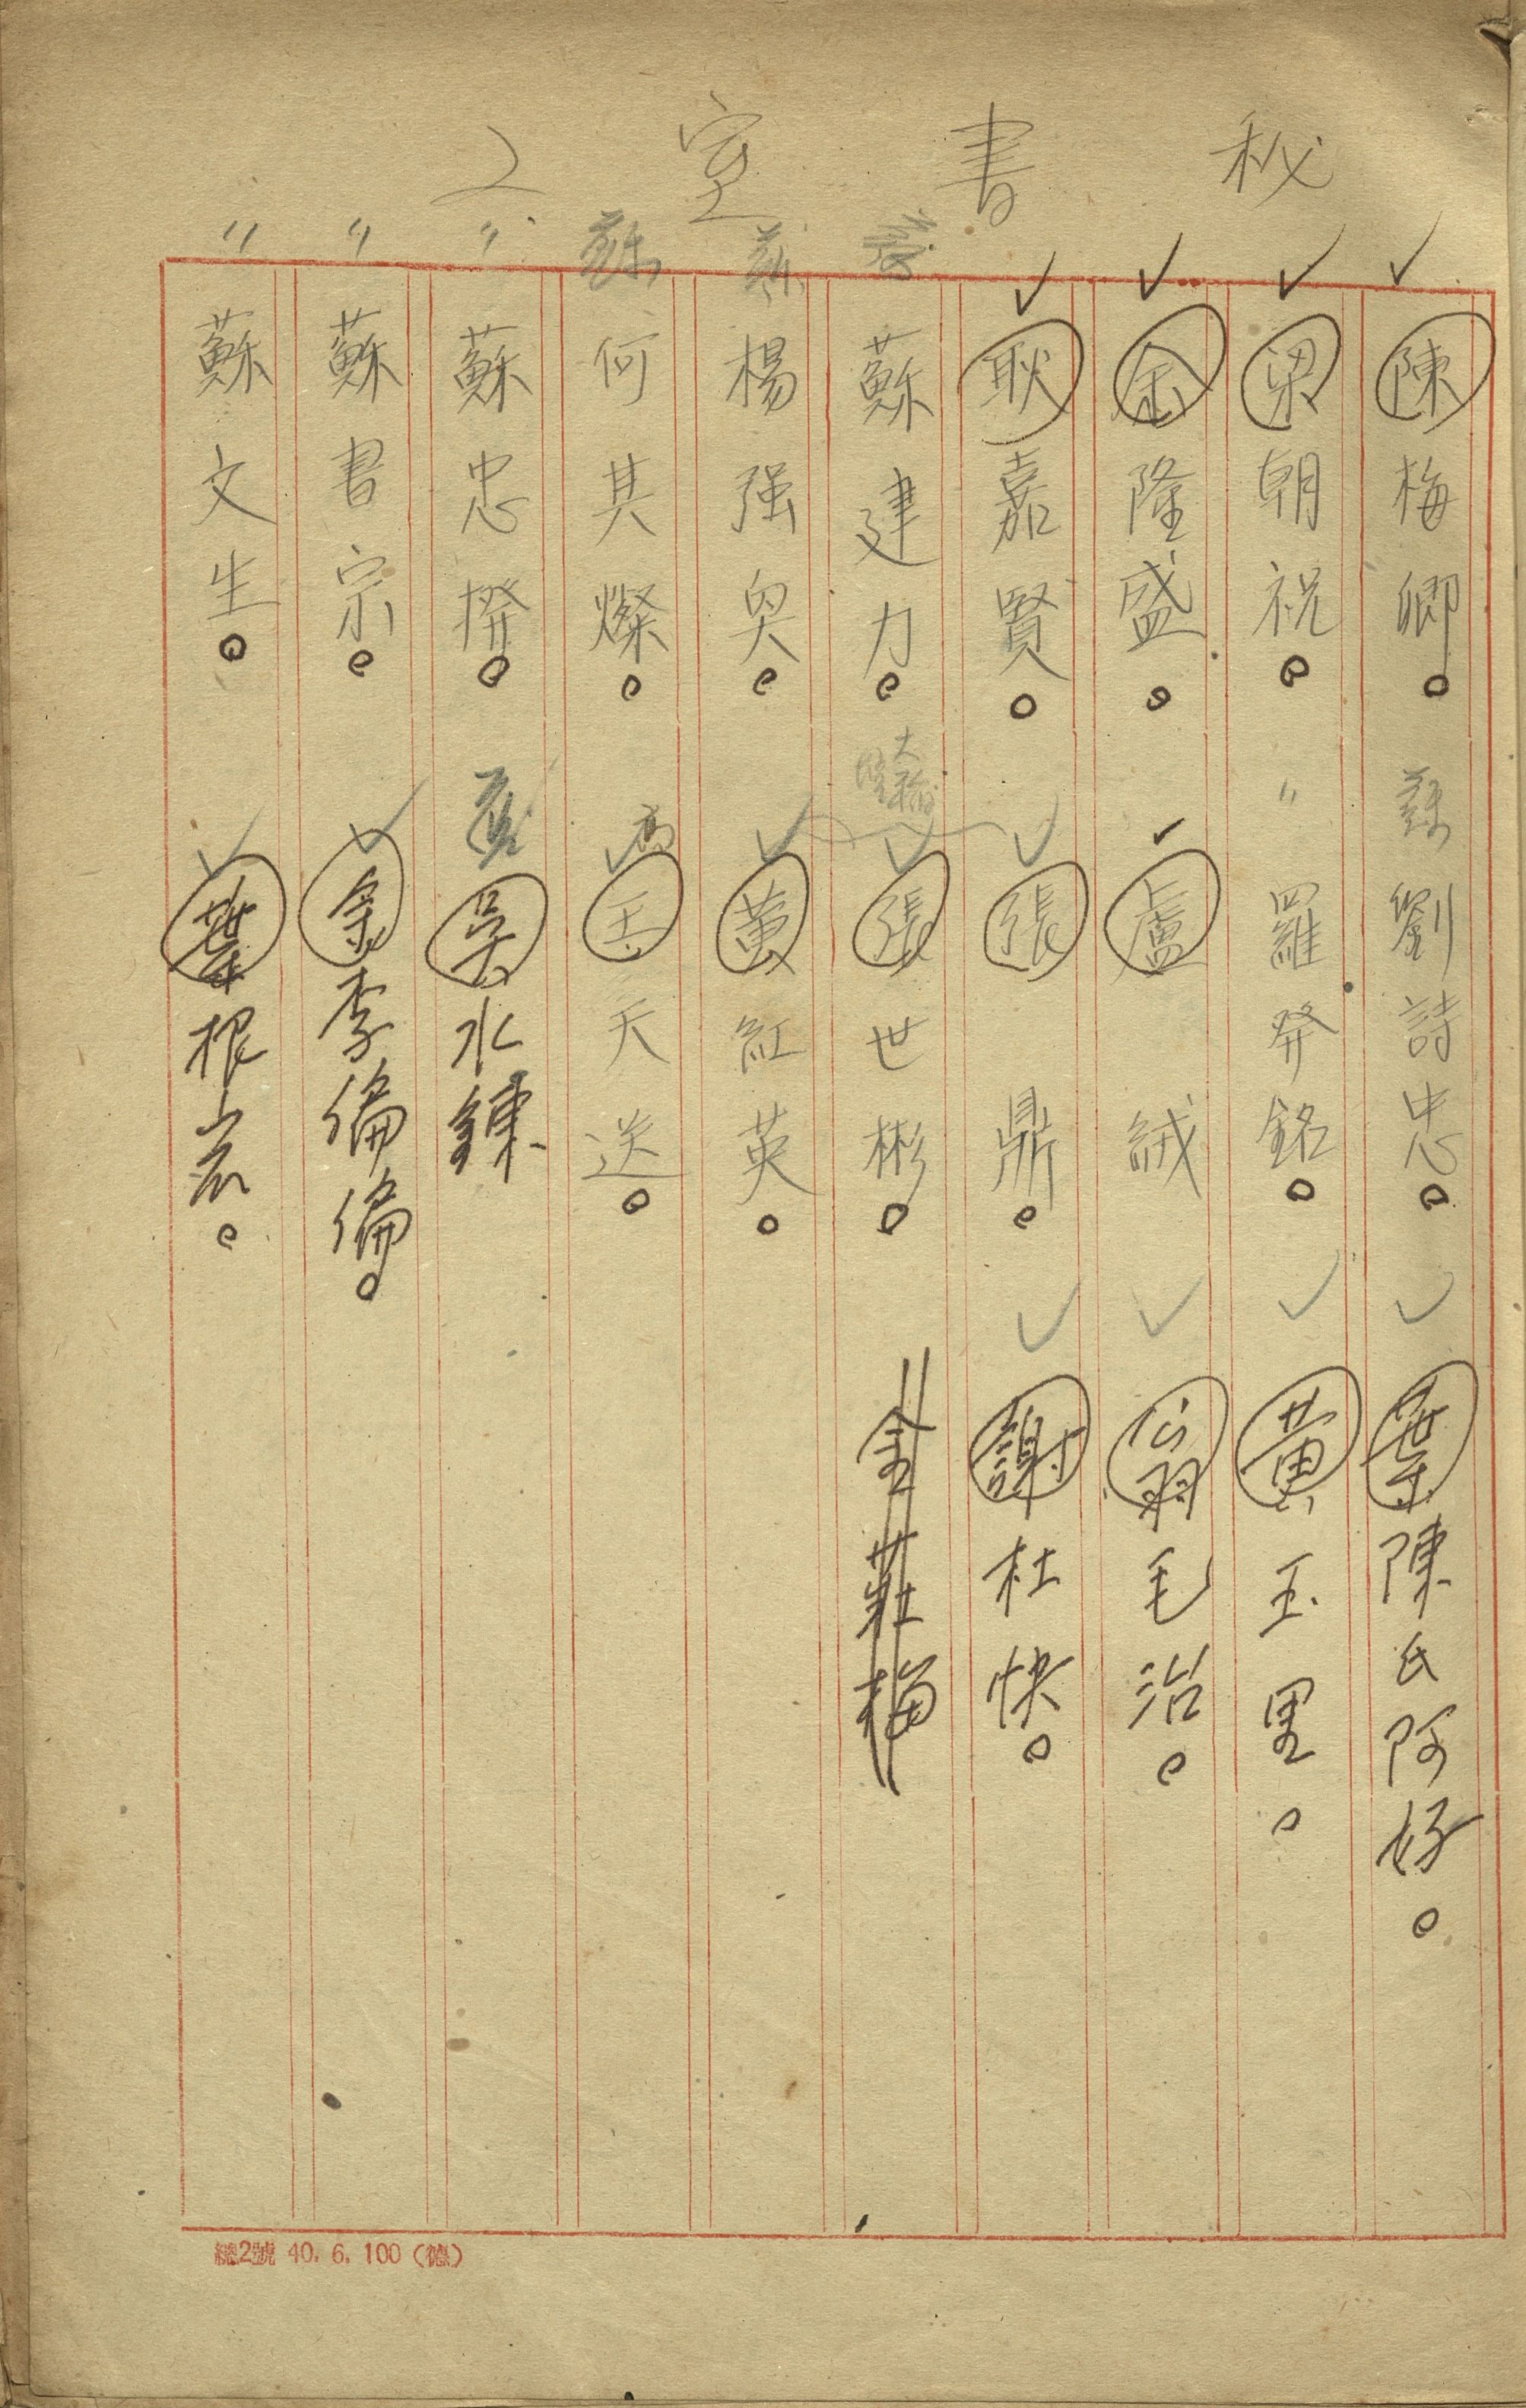 秘書室
陳梅卿。
梁朝祝。
余隆盛。
耿嘉賢。
蘇建力。
蘇
楊强奥。
蘇
何其燦。
〃
蘇忠揆。
〃
蘇書宗。
〃
蘇文生。
蘇
劉詩忠。
〃
羅発銘。
盧 絨
張 鼎。
張世彬。
黃紅英。
王天送。
吳水鍊
余李倫倫。
葉根崑。
葉陳氏阿好。
黄玉里。
翁毛治。
謝杜快。
金莊梅
總2號 40. 6. 100 (德)